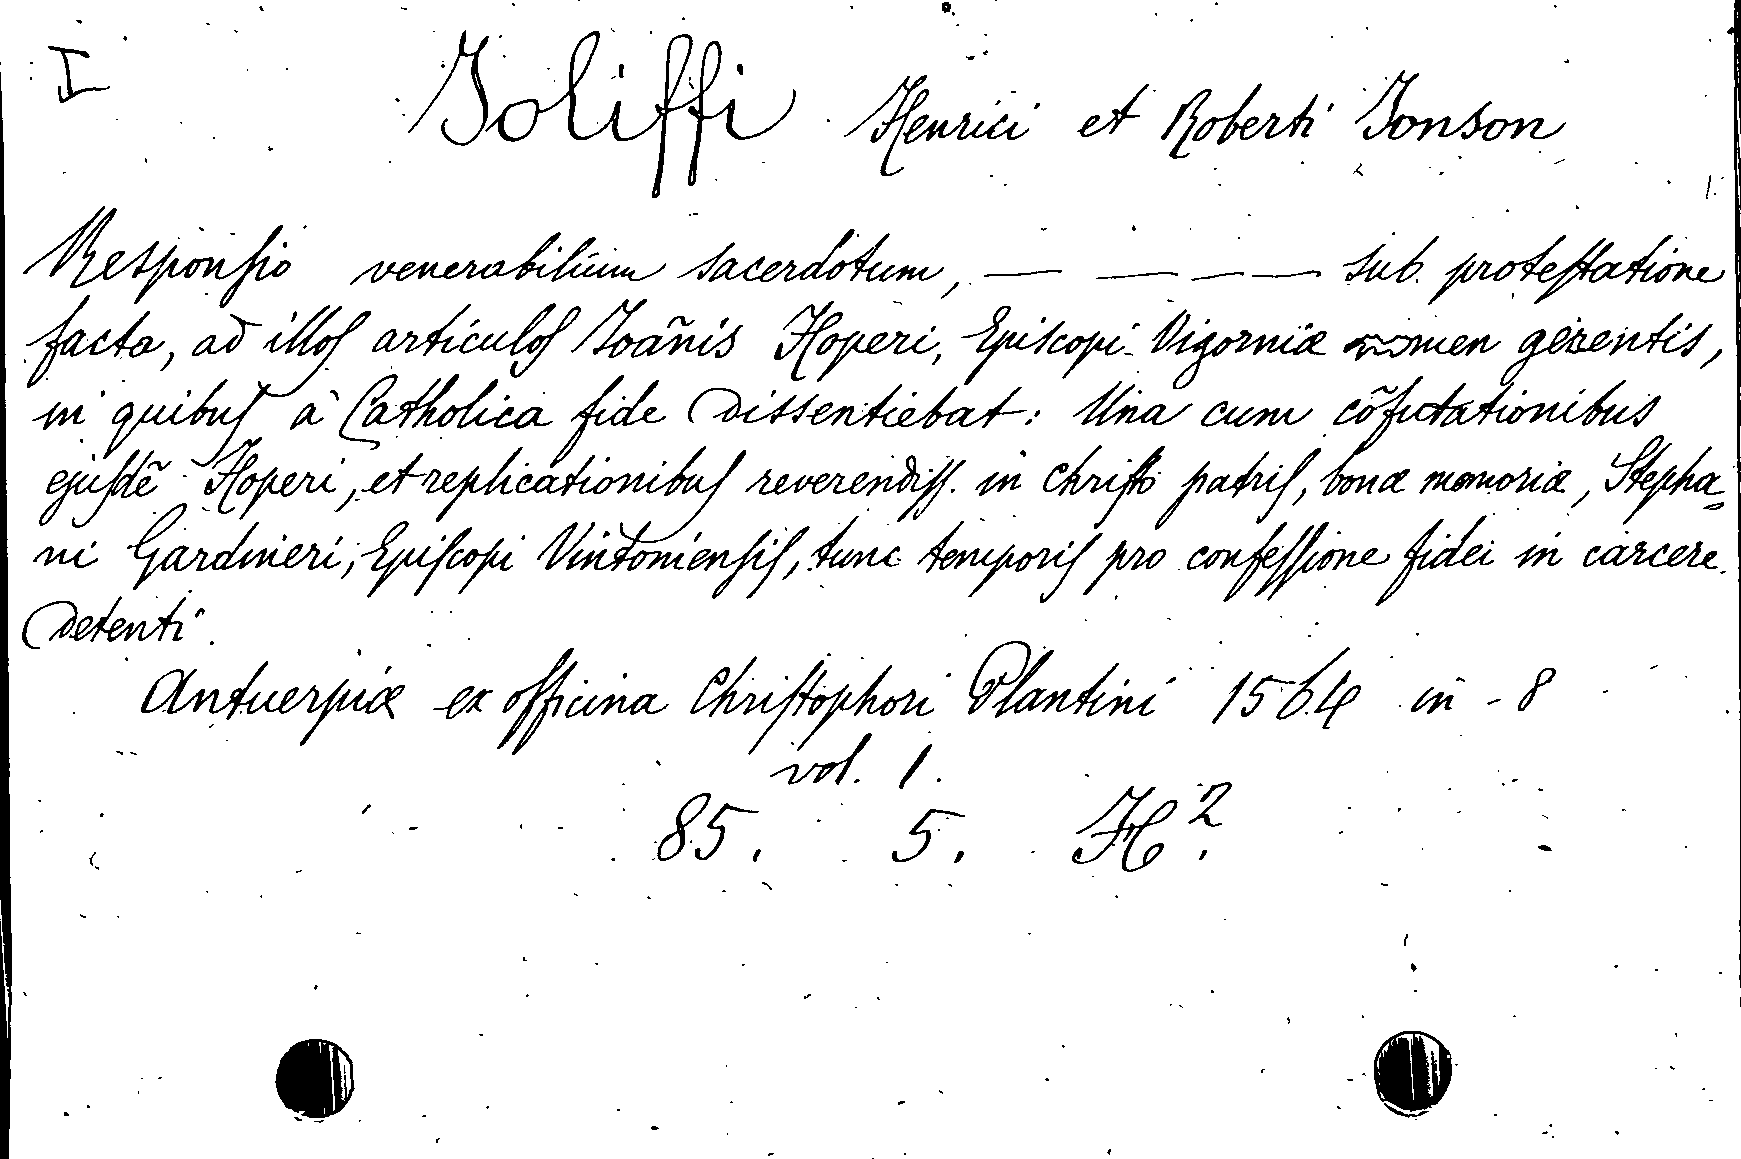 I
Joliffi Henrici et Roberti Jonson
Responſio venerabilium sacerdotum, — — — — sub proteſtatione
facta, ad illoſ articuloſ Joãnis Hoperi, Epiſcopi Vigorniæ nomen gerentis,
in quibuſ à Catholica fide dissentiebat: Una cum cõfutationibus
ejuſdẽ Hoperi, et replicationibuſ reverendiſſ. in Chriſto patriſ, bonæ memoriæ, Stepha=
ni Gardineri, Epiſcopi Vintonienſiſ, tunc temporiſ pro confeſſione fidei in carcere
detenti.
Antuerpiæ ex officina Chriſtophori Plantini 1564 in - 8
vol. 1.
85. 5. H².